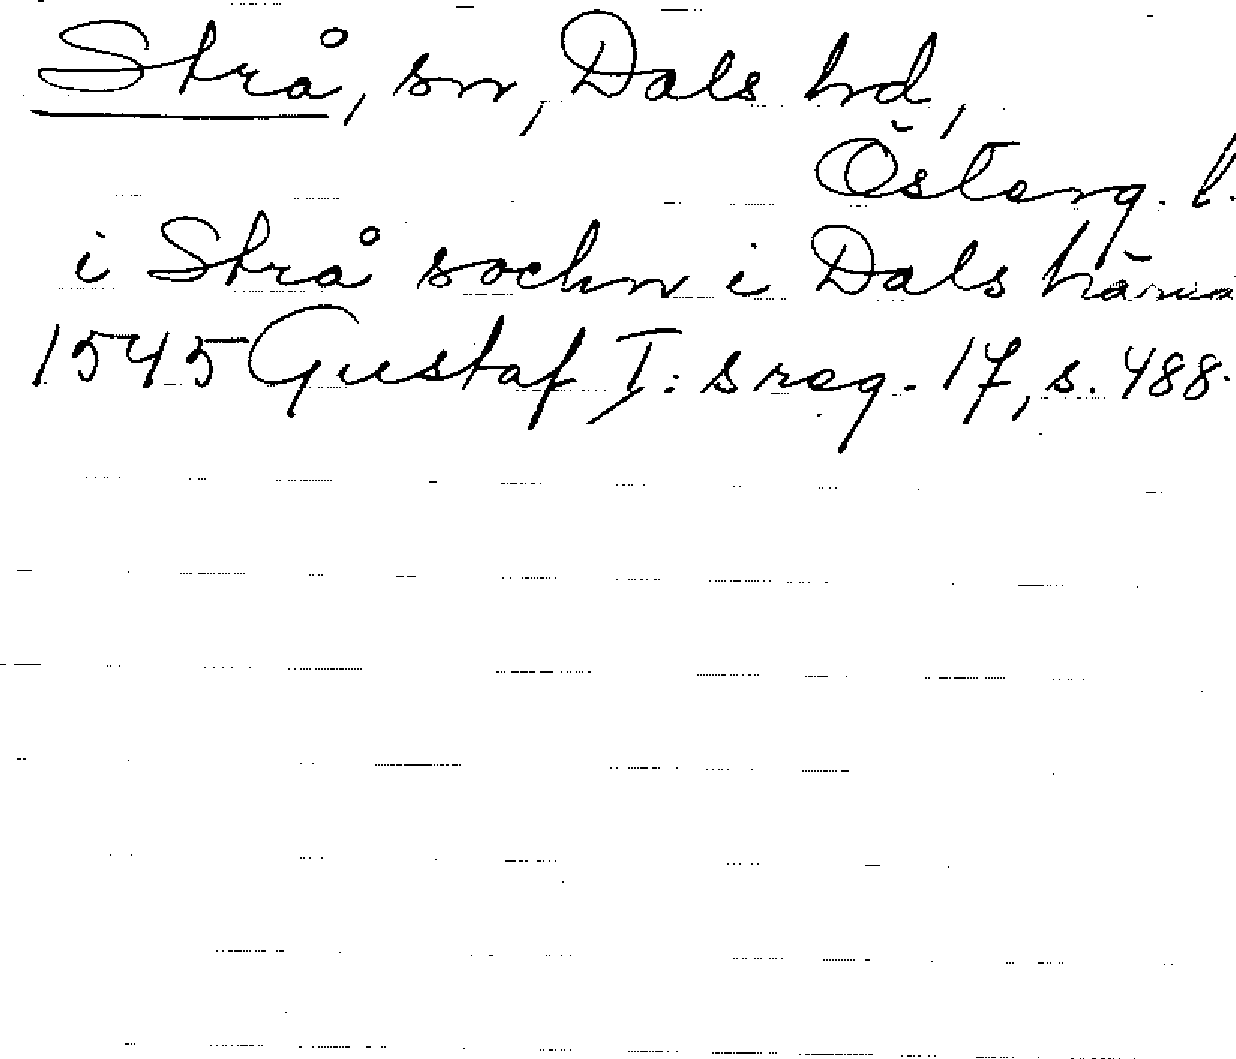 Strå, sn, Dals hd,
Österg. l.
i Strå sochn i Dals
1545 Gustaf I:s reg. 17, s. 488.